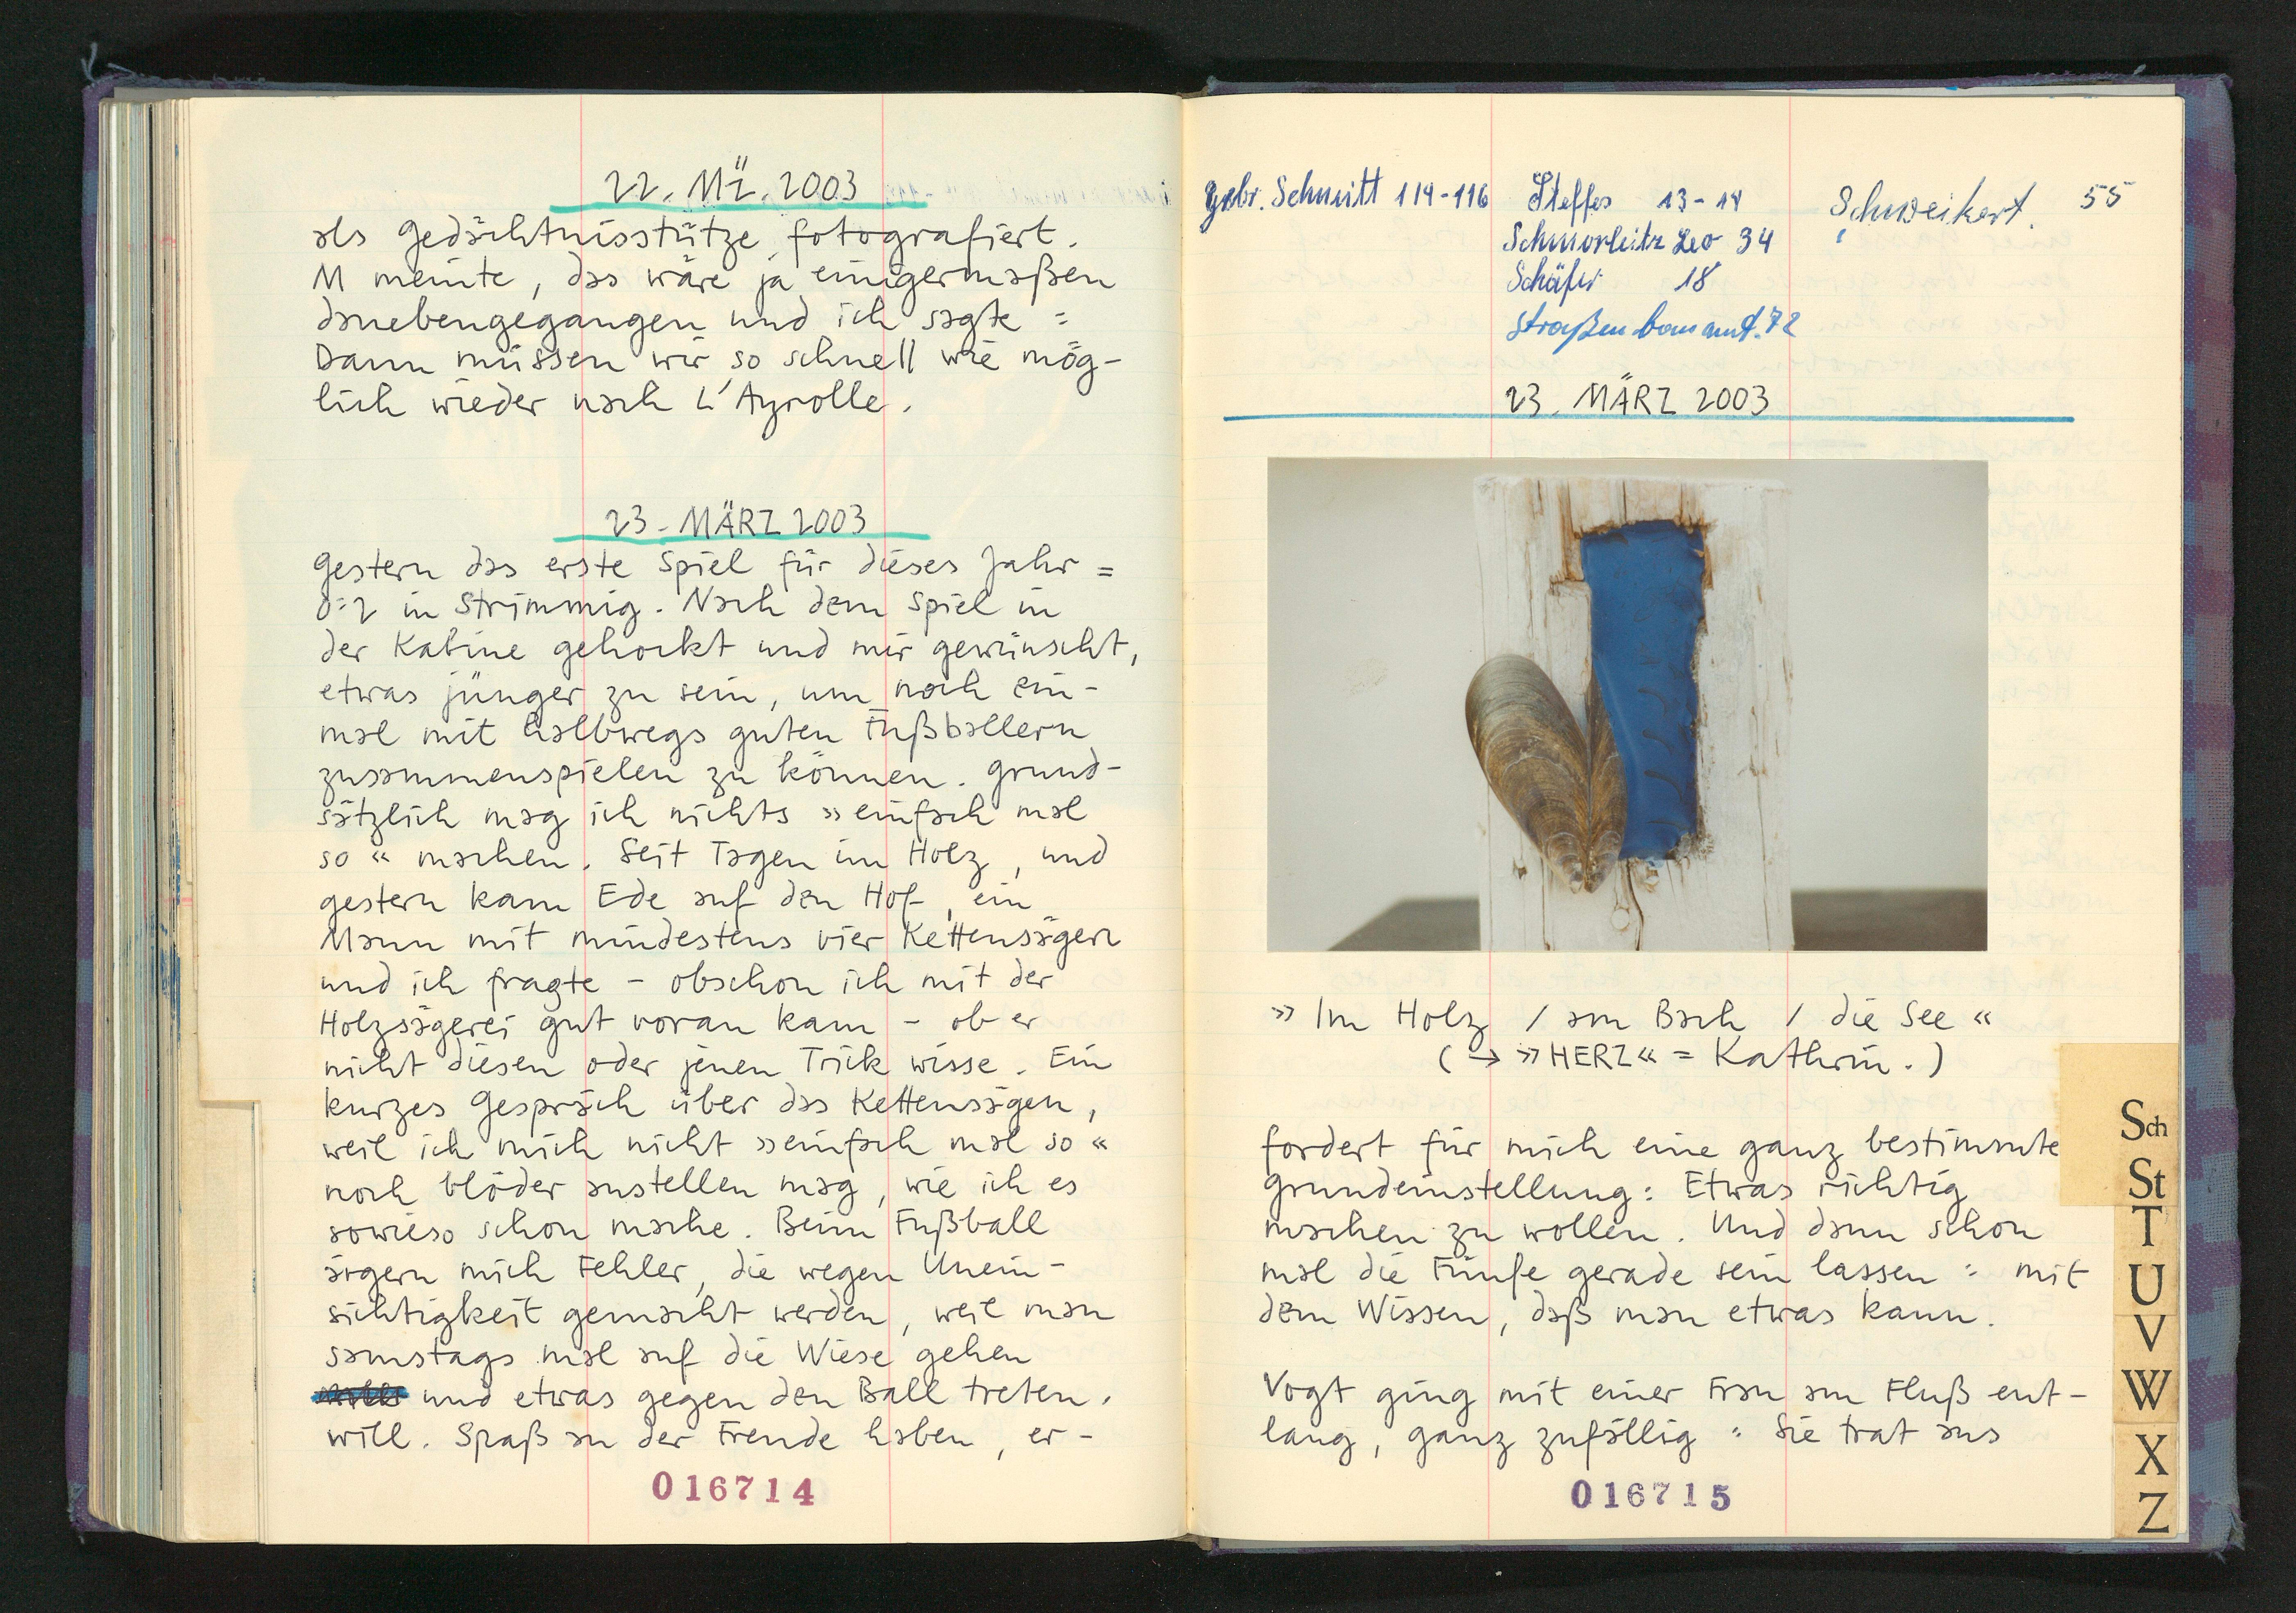 22. MZ. 2003
als Gedächtnisstütze fotografiert.
M meinte, das wäre ja einigermaßen
danebengegangen und ich sagte :
Dann müssen wir so schnell wie mög-
lich wieder nach L'Ayrolle.
23. MÄRZ 2003
Gestern das erste Spiel für dieses Jahr =
0:2 in Strimmig. Nach dem Spiel in
der Kabine gehockt und mir gewünscht,
etwas jünger zu sein, um noch ein-
mal mit halbwegs guten Fußballern
zusammenspielen zu können. Grund-
sätzlich mag ich nichts »einfach mal
so« machen. Seit Tagen im Holz, und
gestern kam Ede auf den Hof, ein
Mann mit mindestens vier Kettensägen
und ich fragte – obschon ich mit der
Holzsägerei gut voran kam – ob er
nicht diesen oder jenen Trick wisse. Ein
kurzes Gespräch über das Kettensägen,
weil ich mich nicht »einfach mal so«
noch blöder anstellen mag, wie ich es
sowieso schon mache. Beim Fußball
ärgern mich Fehler, die wegen Unein-
sichtigkeit gemacht werden, weil man
samstags mal auf die Wiese gehen
und etwas gegen den Ball treten.
will. Spaß an der Freude haben, er-
016714
Gebr. Schmitt 114-116 Steffes 13-14 Schweikert. 55
Leo 34
Schäfer 18
Straßenbauamt. 72
23. MÄRZ 2003
»Im Holz / am Bach / die See«
(→ »HERZ« = Kathrin.)
fordert für mich eine ganz bestimmte
Grundeinstellung: Etwas richtig
machen zu wollen. Und dann schon
mal die Fünfe gerade sein lassen : mit
dem Wissen, daß man etwas kann.
Vogt ging mit einer Frau am Fluß ent-
lang, ganz zufällig : Sie trat aus
016715
Sch
St
T
U
V
W
X
Z